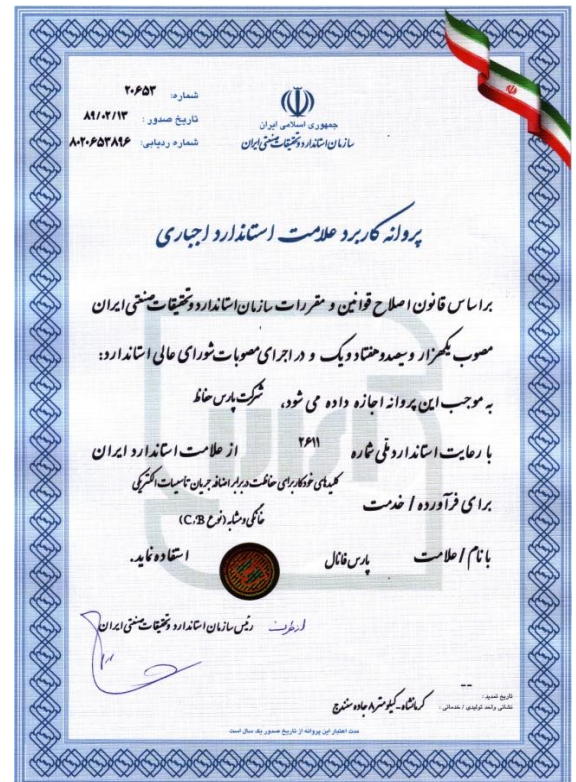 شماره: ۲۰۶۵۳
تاریخ صدور: ۸۹/۰۲/۱۳
شماره ردیابی: ۸۰۲۰۶۵۳۸۹۶
جمهوری اسلامی ایران
سازمان استاندارد و تحقیقات صنعتی ایران
پروانه کاربرد علامت استاندارد اجباری
براساس قانون اصلاح قوانین و مقررات سازمان استاندارد و تحقیقات صنعتی ایران
مصوب یکهزار و سیصد و هفتاد و یک و در اجرای مصوبات شورای عالی استاندارد:
به موجب این پروانه اجازه داده می شود، شرکت پارس حفاظ
با رعایت استاندارد ملّی شماره ۲۶۱۱ از علامت استاندارد ایران
کلیدهای خودکار برای حفاظت در برابر اضافه جریان تاسیسات الکتریکی
برای فرآورده / خدمت
خانگی و مشابه (نوع C،B)
با نام / علامت پارس فانال استفاده نماید.
از طرف رئیس سازمان استاندارد و تحقیقات صنعتی ایران
تاریخ تمدید: --
نشانی واحد تولیدی / خدماتی: کرمانشاه-کیلومتر ۸ جاده سنندج
مدت اعتبار این پروانه از تاریخ صدور یک سال است